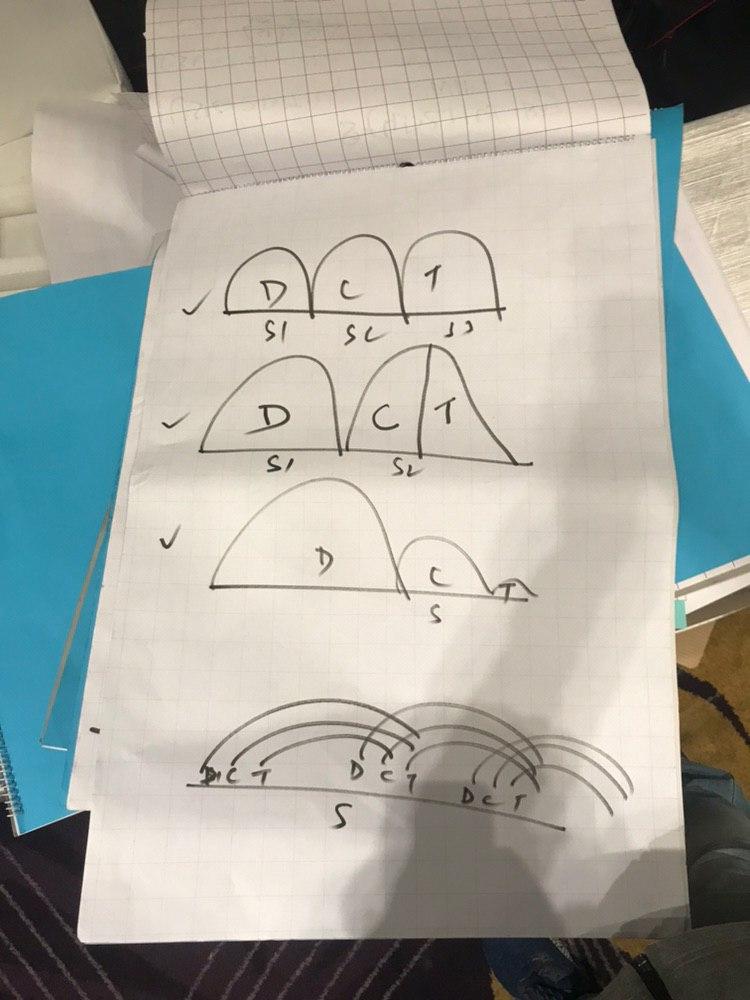 D C T
S1 S2 S3
D C T
S1 S2
D C T
S
D C T D C T D C T
S